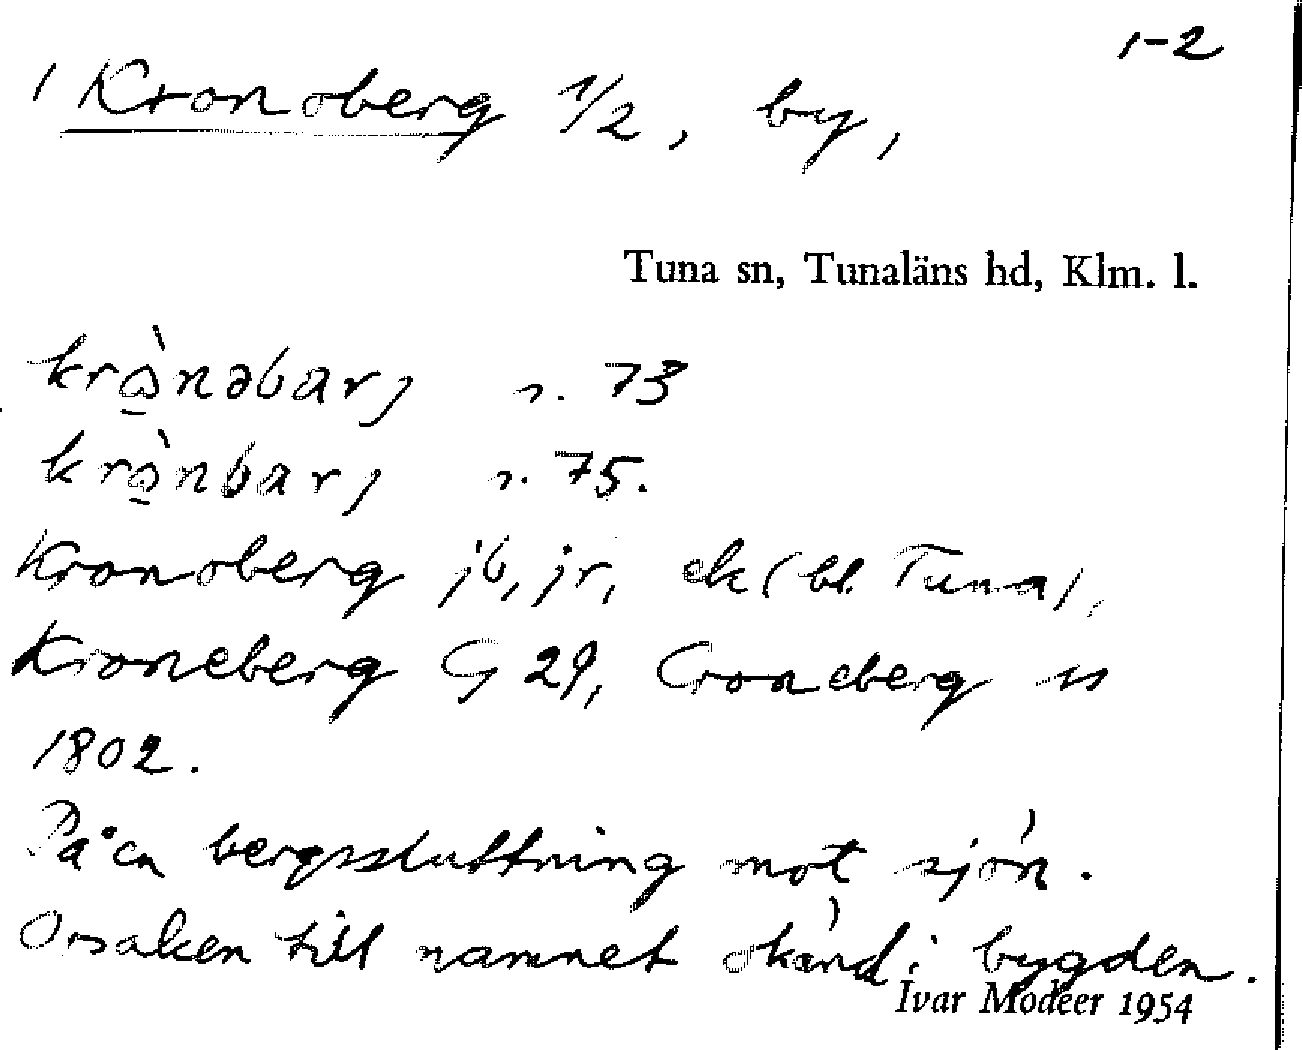 1-2
1 Kronoberg 1/2, by,
Tuna sn, Tunaläns hd, Klm. l.
krɷ̀nəbarj r. 73
krɷ̀nbarj r. 75.
Kronoberg jb, jr, ek (bl. Tuna),
Kroneberg G 29, Croneberg
1802.
På en bergssluttning mot sjön.
Orsaken till namnet okänd i bygden.
Ivar Modéer 1954